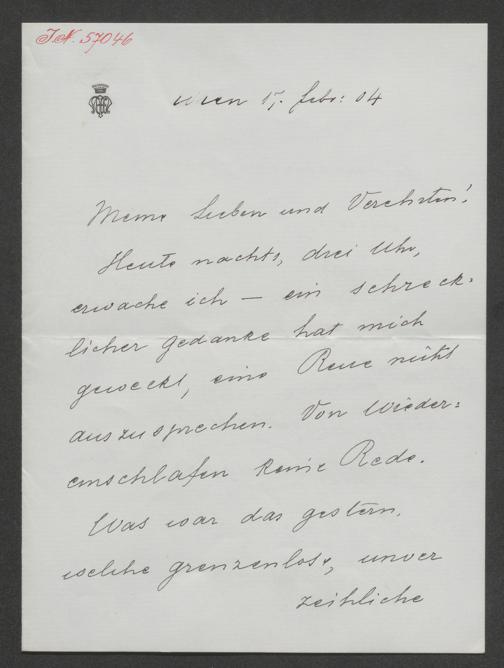 I.N. 57046
Wien 17. Febr: 04
Meine Lieben und Verehrten!
Heute nachts, drei Uhr,
erwache ich — ein schreck=
licher Gedanke hat mich
geweckt, eine Reue nicht
auszusprechen. Von Wieder=
einschlafen keine Rede.
Was war das gestern,
welche grenzenlose, unver
zeihliche